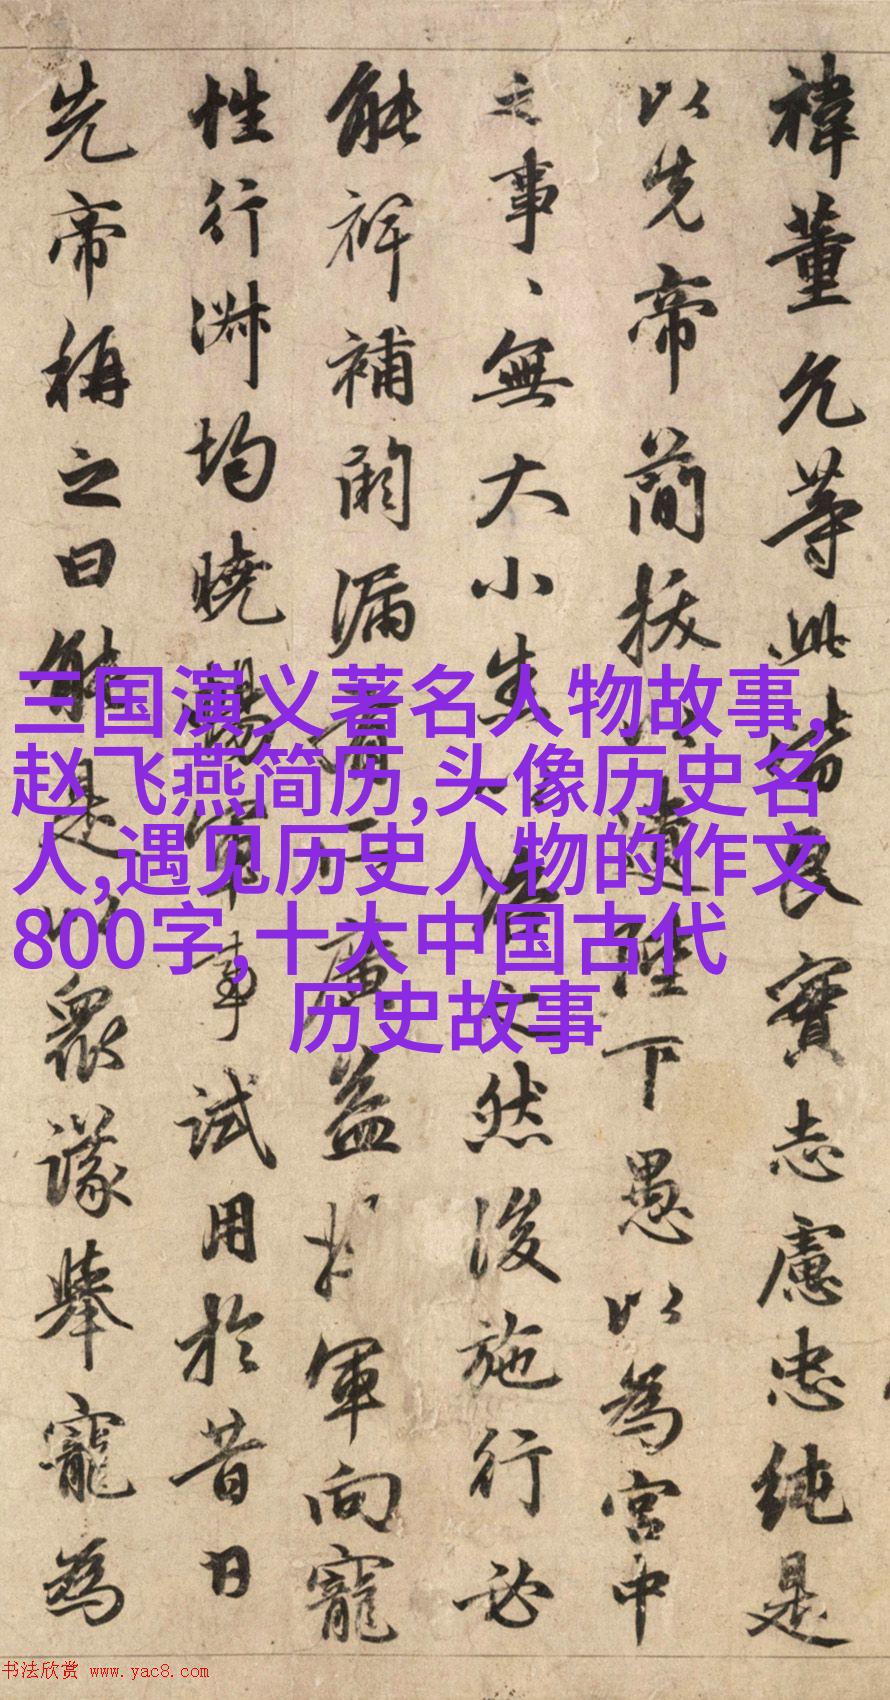 禕董允等此皆良實志慮忠純是
以先帝簡拔以遺陛下愚以為宮中
之事、無大小然後施行必
能裨補闕漏有廣益將軍向寵
性行淋均曉暢軍事試用於昔日
先帝稱之曰能是以眾議舉寵為
三国演义著名人物故事,
赵飞燕简历,头像历史名
人,遇见历史人物的作文
800字,十大中国古代
历史故事
书法欣赏 www.yac8.com